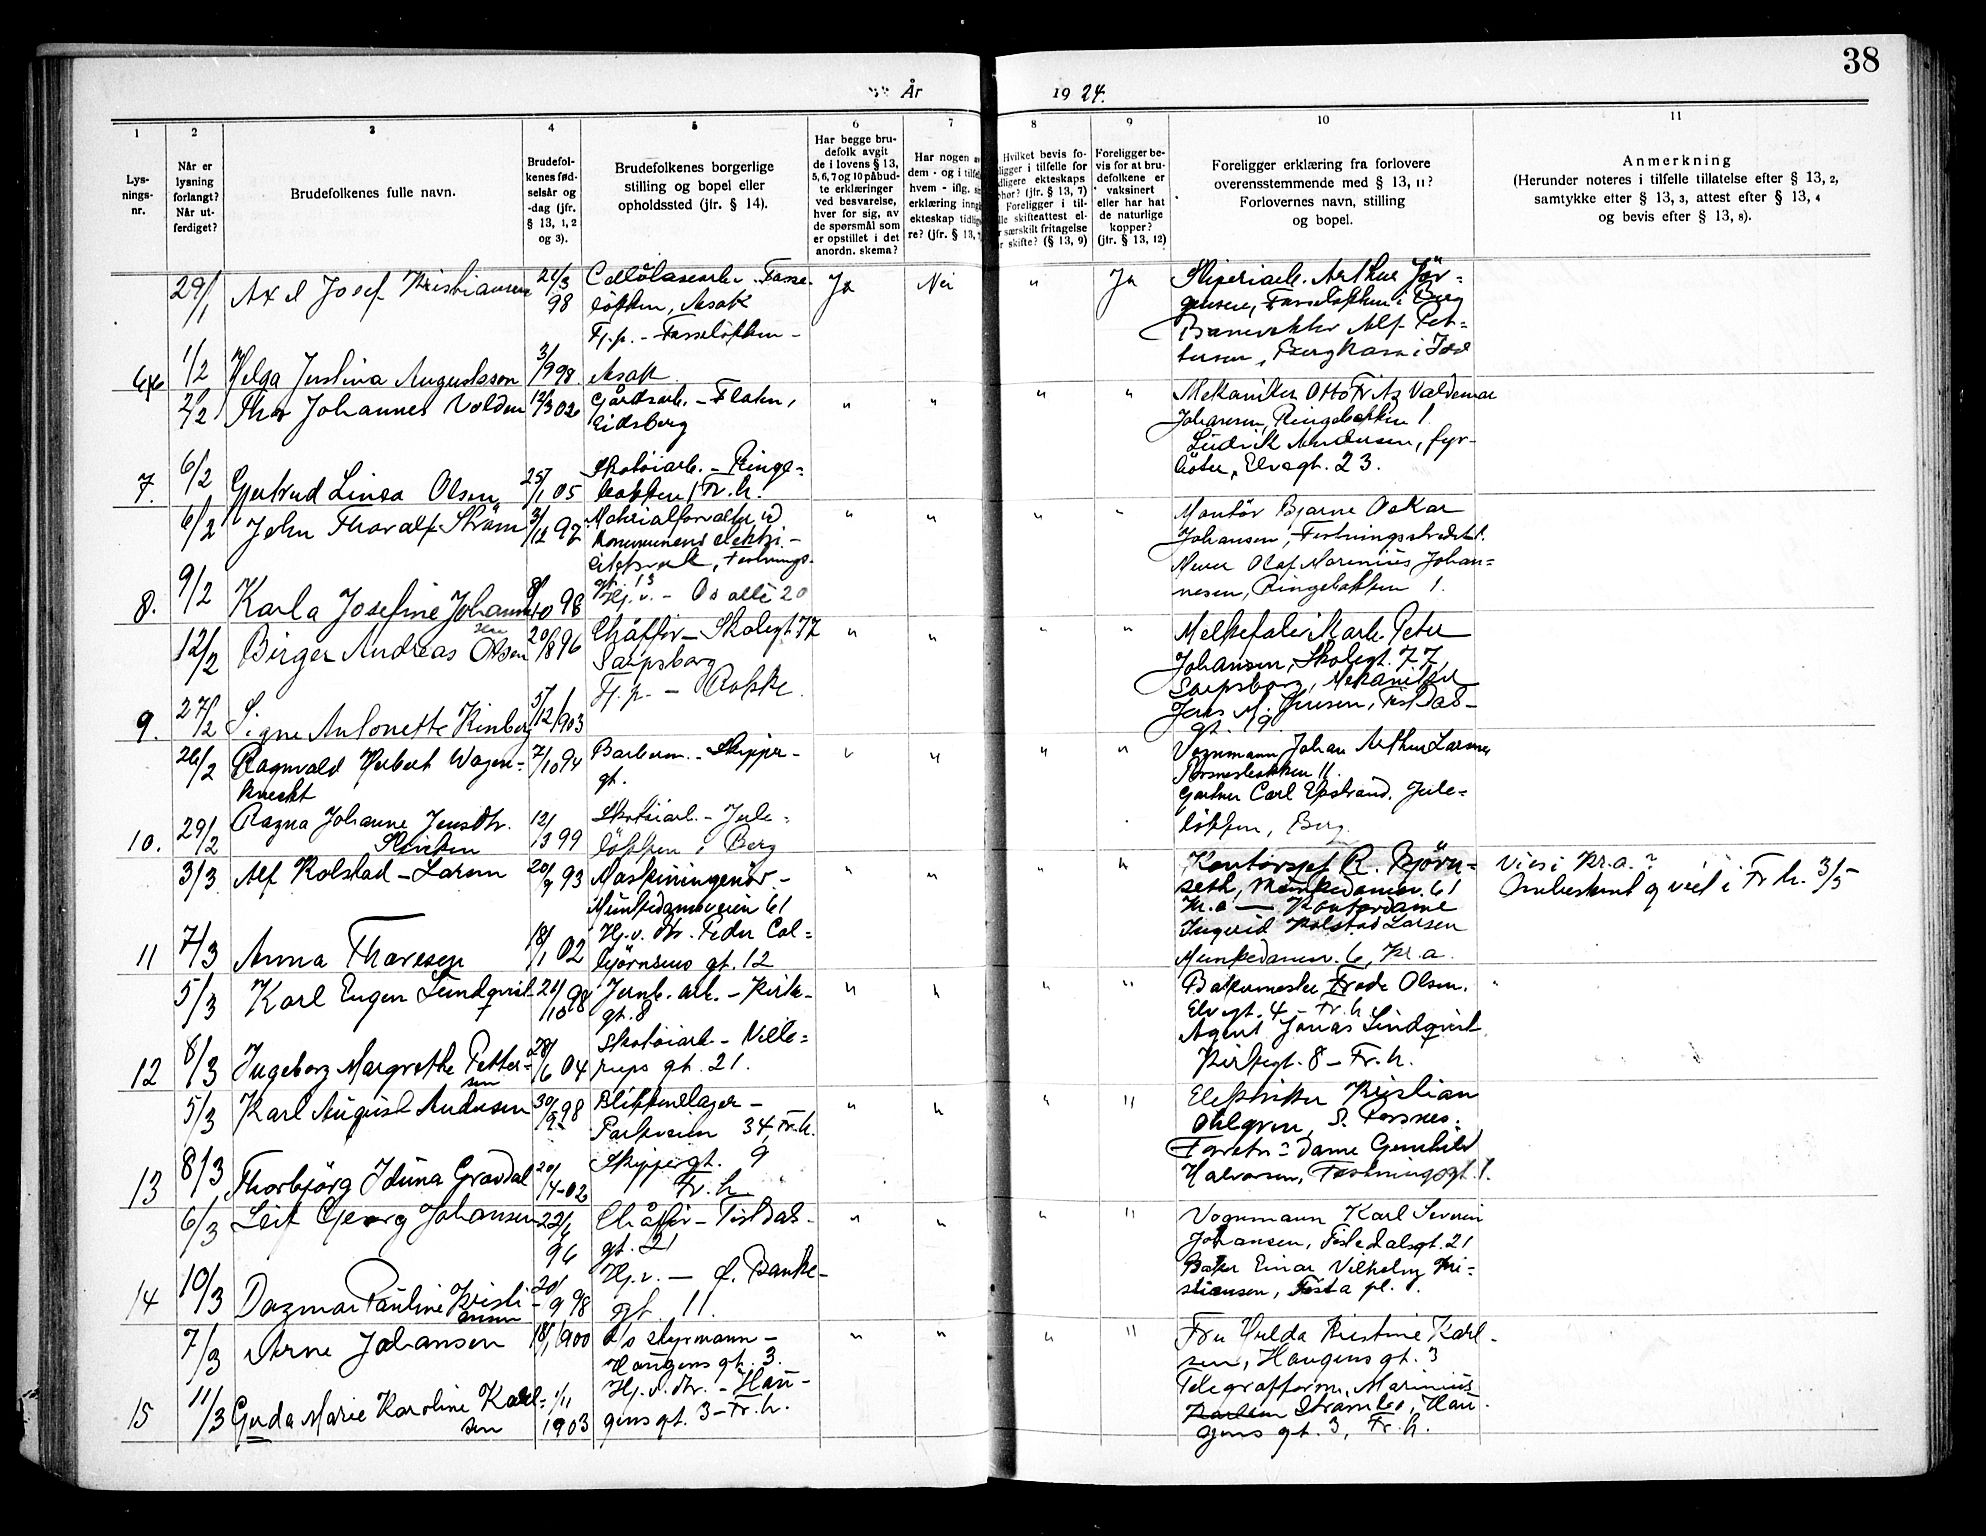 38
År 1924.
1 2 3 4 5 6 7 8 9 10 11
Lys-
nings-
nr.
Når er
lysning
forlangt?
Når ut-
ferdiget?
Brudefolkenes fulle navn.
Brudefol-
kenes fød-
selsår og
-dag (jfr.
§ 13, 1, 2
og 3).
Brudefolkenes borgerlige
stilling og bopel eller
opholdssted (jfr. § 14).
Har begge bru-
defolk avgit
de i lovens § 13,
5, 6, 7 og 10 påbud-
te erklæringer
ved besvarelse,
hver for sig, av
de spørsmål som
er opstillet i det
anordn. skema?
Har nogen
dem - og i
hvem - iflg.
erklæring
ekteskap
re? (jfr. § 13,
Hvilket bevis fo-
i tilfelle for
ekteskaps
(jfr. § 13, 7)
Foreligger i til-
skifteattest el-
særskilt fritagelse
skifte? (§ 13, 9)
Foreligger be-
vis for at bru-
defolkene er
vaksinert
eller har hat
de naturlige
kopper?
(jfr. § 13, 12)
Foreligger erklæring fra forlovere
overensstemmende med § 13, 11?
Forlovernes navn, stilling
og bopel.
Anmerkning
(Herunder noteres i tilfelle tillatelse efter § 13, 2,
samtykke efter § 13, 3, attest efter § 13, 4
og bevis efter § 13, 8).
29/1 Axel Josef Kristiansen 21/3 98
løkken, Asak
Fj.p. -
Ja Nei " Ja
Arthur Jör-
gensen, i Berg
Banevokter Alf Pet-
tersen, i Idd
6
1/2 Helga Justina Augustsson 3/9 98 Asak
2/2 Thor Johannes Volden 12/3 02 Gårdsarb. -
Eidsberg
" " " "
Mekaniker Otto Fritz Valdemar
Johansen, Ringebakken 1.
Ludvik Andersen, fyr-
böter, Elvegt. 23.
7. 6/2 Gertrud Linea Olsen 25/1 05 Skotöiarb. - Ringe-
bakken 1 Fr.h.
6/2 John Thoralf Ström 3/12 97 Materialforvalter v
kommunens elektri-
citetsverk, Festnings-
gt. 13
" " " "
Montör Bjarne Oskar
Johansen, Festningsstredet 1.
Murer Olaf Marenius Johan-
nesen, Ringebakken 1.
8. 9/2 Karla Josefine Johannsen 8/10 98 Hj.v. - Os allé 20
12/2 Birger Andreas Olsen 20/8 96 Chåffør - Skolegt. 77
Sarpsborg
" " " "
Peter
Johansen, Skolegt. 77,
Sarpsborg, Mekaniker
Jens M. Jensen, Tistdals-
gt. 19.
9. 27/2 Signe Antonette Kinberg 5/12 1903 Fj.p. - Rokke.
26/2 Ragnvald Herbert Wagen-
knecht 7/10 94 Barberm. - Skipper-
gt.
" " " "
Vognmann Johan Arthur Larsen
Torsnesbakken 11.
Gartner Carl Opstrand, Jule-
løkken, Berg.
10. 29/2 Ragna Johanne Jensdtr.
12/3 99 Skotöiarb. - Jule-
løkken i Berg
3/3 Alf Rolstad-Larsen 20/9 93 Maskiningeniör -
Munkedamsveien 61
" " " "
Kontorsjef R. Björn-
seth, Munkedamsv. 61
Kr.a - Kontordame
Ingrid Rolstad Larsen
Munkedamsv. 6, Kr.a.
Vies i Kr.a.?
Ombestemt og viet i Fr.h. 3/5
11 7/3 Anna Thoresen 18/1 02 Hj.v. dtr. Peder Col-
björnsens gt. 12
5/3 Karl Eugen Lundqvist 21/10 98 Jernb. arb. - Kirke-
gt. 8
" " " " "
Bakermester Frode Olsen,
Elvegt. 4 - Fr.h.
Agent Jonas Lindqvist
Kirkegt. 8 - Fr.h.
12 8/3 Ingeborg Margrethe Petter-
sen 28/6 04 Skotöiarb - Ville-
rups gt. 21.
5/3 Karl August Andersen 30/92 98 Blikkenslager -
Parkveien 34, Fr.h.
" " " "
Elektriker Kristian
Ohlgren, S. Torsnes.
Forretn.-Dame Gunhild
Halvorsen, Festningsgt. 1.
13 8/3 Thorbjörg Iduna Gravdal 20/4-02 Skippergt. 9
Fr.h
6/3 Leif Georg Johansen 22/6 96 Chåffør - Tistdals-
gt. 21
" " " "
Vognmann Karl Severin
Johansen, Tistedalsgt. 21
Baker Einar Vilhelm Kri-
stiansen, Festa pl. 1.
14 10/3 Dagmar Pauline Kristi-
ansen 20/9 98 Hj.v. - O. Banke-
gt. 11.
7/3 Arne Johansen 18/1 1900 d/s styrmann -
Haugens gt. 3.
" " " "
Fru Hulda Kristine Karl-
sen, Haugens gt. 3
Telegrafform. Marinius
Karlsen Strømbo, Hau-
gens gt. 3, Fr.h.
15 11/3 Gerda Marie Karoline Karl-
sen 1/11 1903 Hj.v.dtr. - Hau-
gens gt. 3 - Fr.h.